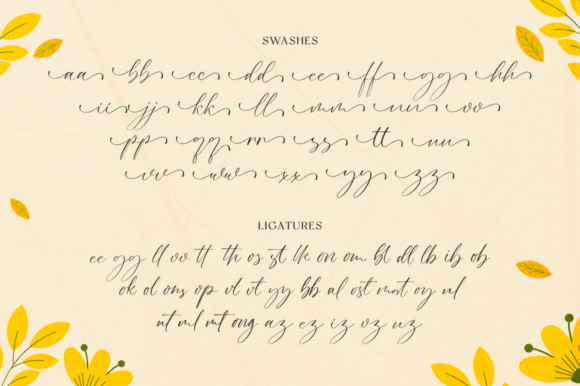 SWASHES
aa bb cc dd ee ff gg hh
ii jj kk ll mm nn oo
pp qq rr ss tt uu
vv ww xx yy zz
LIGATURES
ee gg ll oo tt th os st lk on om bl dl lb ib ob
ok ol ons op vl vt yy bb al ost most oy ul
ut ml mt ong az ez iz oz uz